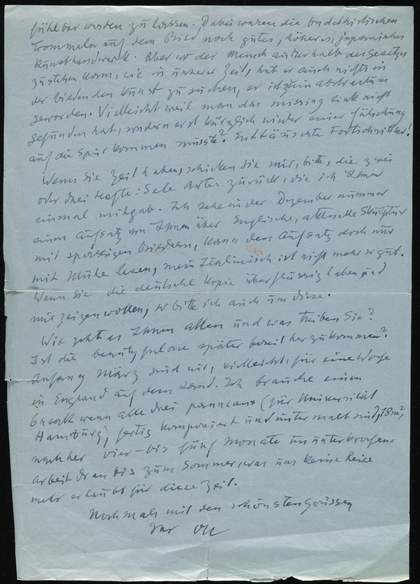 fühlbar werden zu lassen. Dabei waren die buddhistischen
Trommeln auf dem Bild noch gutes, höheres, japanisches
Kunsthandwerk. Aber wo der Mensch ausserhalb des Gesetzes
zu stehen kommt, wie in unserer Zeit, hat er auch nichts in
der bildenden Kunst zu suchen, er ist ein abstractum
geworden. Vielleicht weil man das missing link nicht
gefunden hat, sondern erst kürzlich wieder einer Fälschung
auf die Spur kommen musste? Enttäuschte Fortschrittler!
Wenn Sie Zeit haben, schicken Sie mir, bitte, die zwei
oder drei Hefte: Sele Artes zurück, die ich Ihnen
einmal mitgab. Ich sehe in der Dezember nummer
einen Aufsatz von Ihnen über Englische, aktuelle Skulptur
mit spassigen Bildchen, kann den Aufsatz doch nur
mit Mühe lesen, mein Italienisch ist nicht mehr so gut.
Wenn Sie die deutsche Kopie überflüssig haben und
mir zeigen wollen, so bitte ich auch um diese.
Wie geht es Ihnen allen und was treiben Sie?
Ist die beauty free später bereit herzukommen?
Anfang März sind wir, vielleicht, für eine Woche
in England auf dem Land. Ich brauche einen
break wenn alle drei panneaux (für Universität
Hamburg) fertig komponiert und untermalt sind, 18m²,
nachher vier-bis fünf Monate ununterbrochene
Arbeit dran bis zum Sommer, was uns keine Reise
mehr erlaubt für diese Zeit.
Nochmals mit den schönsten Grüssen
Ihr OK